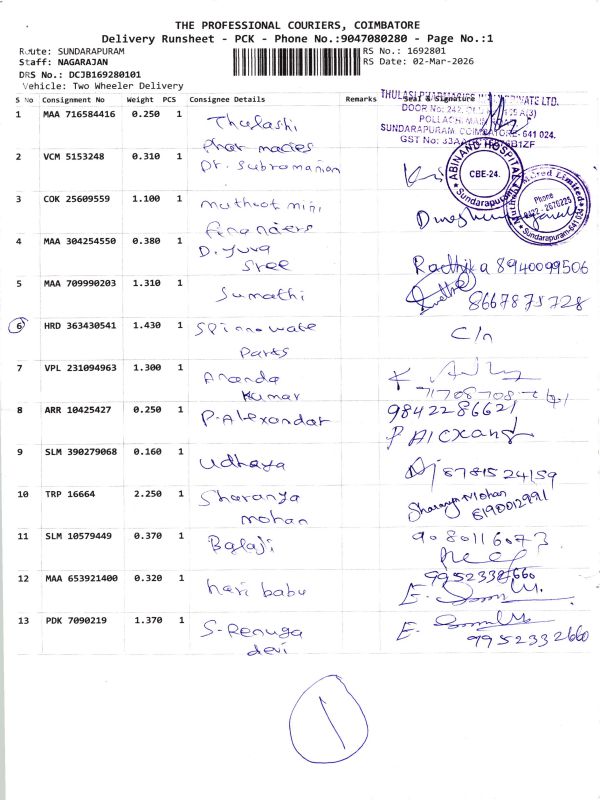 THE PROFESSIONAL COURIERS, COIMBATORE
Delivery Runsheet - PCK - Phone No.:9047080280 - Page No.:1
Route: SUNDARAPURAM
RS No.: 1692801
Staff: NAGARAJAN
RS Date: 02-Mar-2026
DRS No.: DCJB169280101
Vehicle: Two Wheeler Delivery
S No Consignment No Weight PCS Consignee Details Remarks Seal & Signature
THULASI PHARMACIES PRIVATE LTD.
DOOR No: 242,
POLLACHI MAIN
SUNDARAPURAM, COIMBATORE- 641 024.
GST No: 33AA
1 MAA 716584416 0.250 1 Thulashi
Pharmacies
2 VCM 5153248 0.310 1 Dr. Subramanian
ABINAND HOSPITAL
CBE-24.
Sundarapuram
3 COK 25609559 1.100 1 muthoot mini
financiers
Phone
0422 - 2670225
Sundarapuram-641 024
4 MAA 304254550 0.380 1 D. yuva
Sree
Radhika 8940099506
5 MAA 709990203 1.310 1 Sumathi
8667875728
6 HRD 363430541 1.430 1 Spinnowate
Parts
C/n
7 VPL 231094963 1.300 1 Ananda
Kumar
8 ARR 10425427 0.250 1 P. Alexandar
9842286621
9 SLM 390279068 0.160 1 Udhaya
8781524159
10 TRP 16664 2.250 1 Sharanya
mohan
Sharanya Mohan
8190012991
11 SLM 10579449 0.370 1 Balaji
9080116073
12 MAA 653921400 0.320 1 hari babu
9952332660
13 PDK 7090219 1.370 1 S-Renuga
devi
9952332660
1